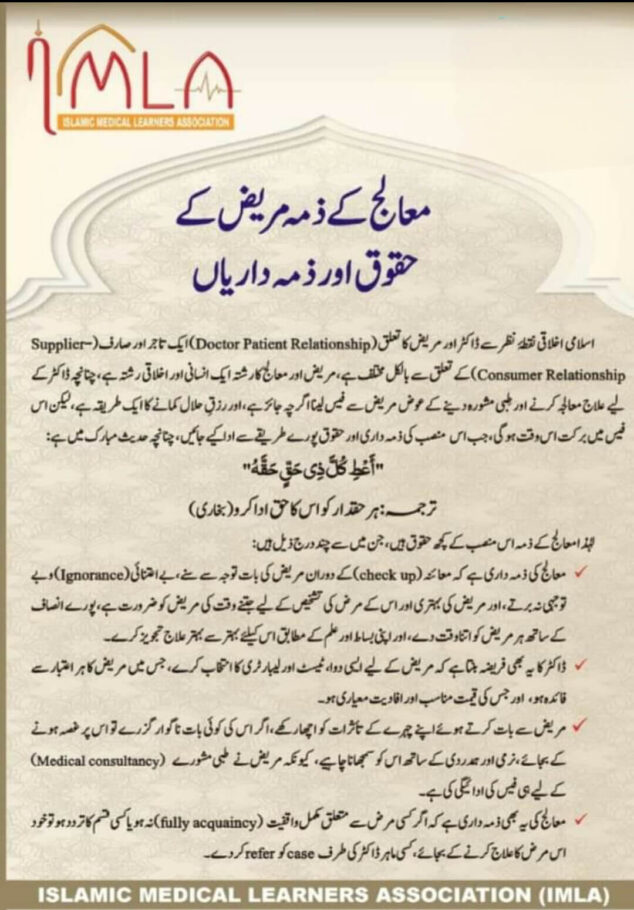 IMLA
ISLAMIC MEDICAL LEARNERS ASSOCIATION
معالج کے ذمہ مریض کے
حقوق اور ذمہ داریاں
اسلامی اخلاقی نقطۂ نظر سے ڈاکٹر اور مریض کا تعلق (Doctor Patient Relationship) ایک تاجر اور صارف (Supplier-
Consumer Relationship) کے تعلق سے بالکل مختلف ہے، مریض اور معالج کا رشتہ ایک انسانی اور اخلاقی رشتہ ہے، چنانچہ ڈاکٹر کے
لیے علاج معالجہ کرنے اور طبی مشورہ دینے کے عوض مریض سے فیس لینا اگرچہ جائز ہے، اور رزقِ حلال کمانے کا ایک طریقہ ہے، لیکن اس
فیس میں برکت اس وقت ہوگی، جب اس منصب کی ذمہ داری اور حقوق پورے طریقے سے ادا کیے جائیں، چنانچہ حدیث مبارک میں ہے:
"أَعْطِ كُلَّ ذِي حَقٍّ حَقَّهُ"
ترجمہ: ہر حقدار کو اس کا حق ادا کرو (بخاری)
لہٰذا معالج کے ذمہ اس منصب کے کچھ حقوق ہیں، جن میں سے چند درج ذیل ہیں:
✓ معالج کی ذمہ داری ہے کہ معائنہ (check up) کے دوران مریض کی بات توجہ سے سنے، بے اعتنائی (Ignorance) و بے
توجہی نہ برتے، اور مریض کی بہتری اور اس کے مرض کی تشخیص کے لیے جتنے وقت کی مریض کو ضرورت ہے، پورے انصاف
کے ساتھ ہر مریض کو اتنا وقت دے، اور اپنی بساط اور علم کے مطابق اس کیلئے بہتر سے بہتر علاج تجویز کرے۔
✓ ڈاکٹر کا یہ بھی فریضہ بنتا ہے کہ مریض کے لیے ایسی دوا، ٹیسٹ اور لیبارٹری کا انتخاب کرے، جس میں مریض کا ہر اعتبار سے
فائدہ ہو، اور جس کی قیمت مناسب اور افادیت معیاری ہو۔
✓ مریض سے بات کرتے ہوئے اپنے چہرے کے تأثرات کو اچھا رکھے، اگر اس کی کوئی بات ناگوار گزرے تو اس پر غصہ ہونے
کے بجائے، نرمی اور ہمدردی کے ساتھ اس کو سمجھانا چاہیے، کیونکہ مریض نے طبی مشورے (Medical consultancy)
کے لیے ہی فیس کی ادائیگی کی ہے۔
✓ معالج کی یہ بھی ذمہ داری ہے کہ اگر کسی مرض سے متعلق مکمل واقفیت (fully acquaincy) نہ ہو یا کسی قسم کا تردد ہو تو خود
اس مرض کا علاج کرنے کے بجائے، کسی ماہر ڈاکٹر کی طرف case کو refer کردے۔
ISLAMIC MEDICAL LEARNERS ASSOCIATION (IMLA)